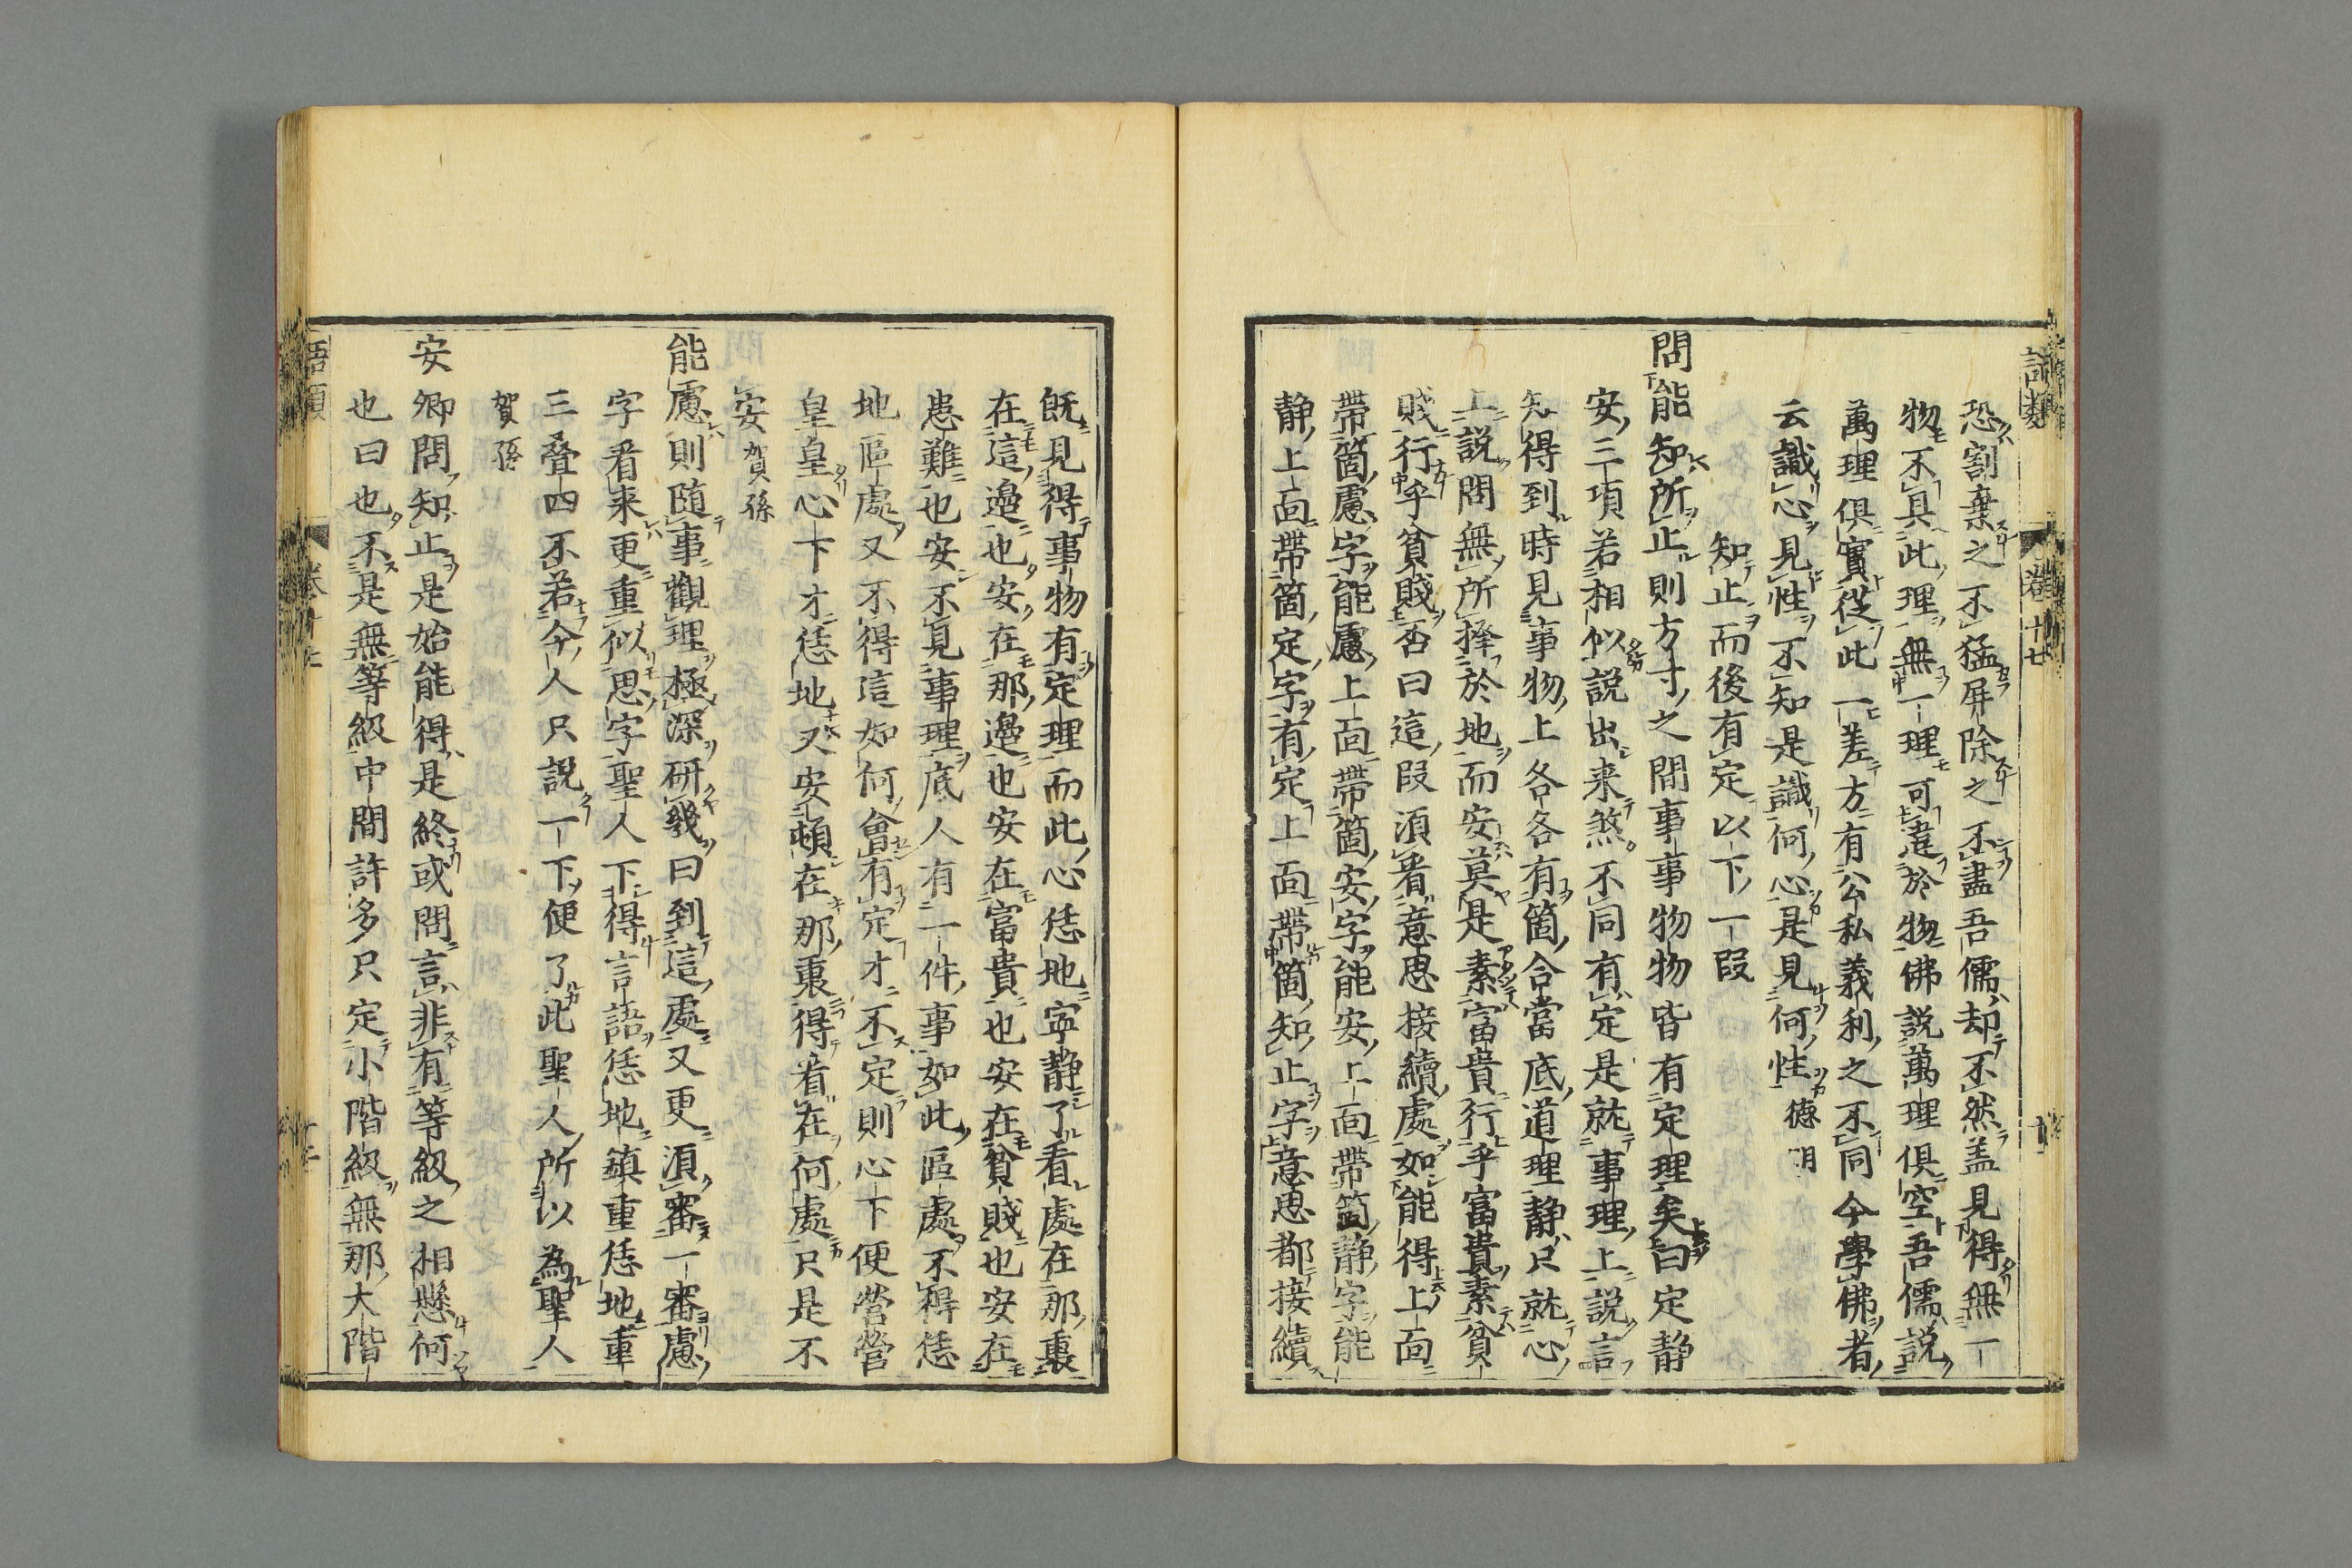 語類 卷十七
恐割棄之不猛屏除之不盡吾儒却不然盖見得無一
物不具此理無一理可違於物佛說萬理俱空吾儒說
萬理俱實從此一差方有公私義利之不同今學佛者
云識心見性不知是識何心是見何性德明
知止而後有定以下一段
問能知所止則方寸之間事事物物皆有定理矣曰定靜
安三項若相似說出来煞不同有定是就事理上說言
知得到時見事物上各各有箇合當底道理靜只就心
上說問無所擇於地而安莫是素富貴行乎富貴素貧
賤行乎貧賤否曰這段須看意思接續處如能得上面
帶箇慮字能慮上面帶箇安字能安上面帶箇靜字能
靜上面帶箇定字有定上面帶箇知止字意思都接續
既見得事物有定理而此心恁地寧靜了看處在那裏
在這邊也安在那邊也安在富貴也安在貧賤也安在
患難也安不見事理底人有一件事如此區處不得恁
地區處又不得這如何會有定才不定則心下便營營
皇皇心下才恁地又安頓在那裏得看在何處只是不
安賀孫
能慮則隨事觀理極深研幾曰到這處又更須審一審慮
字看来更重似思字聖人下得言語恁地鎮重恁地重
三叠四不若今人只說一下便了此聖人所以為聖人
賀孫
安卿問知止是始能得是終或問言非有等級之相懸何
也曰也不是無等級中間許多只定小階級無那大階
語類 卷十七